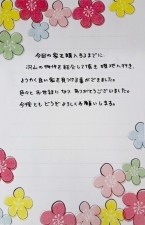 今回の家を購入するまでに
沢山の物件を紹介して頂き現地へ行き、
ようやく良い家を見つける事ができました。
色々とお世話になり ありがとうございました。
今後とも どうぞ よろしくお願いします。